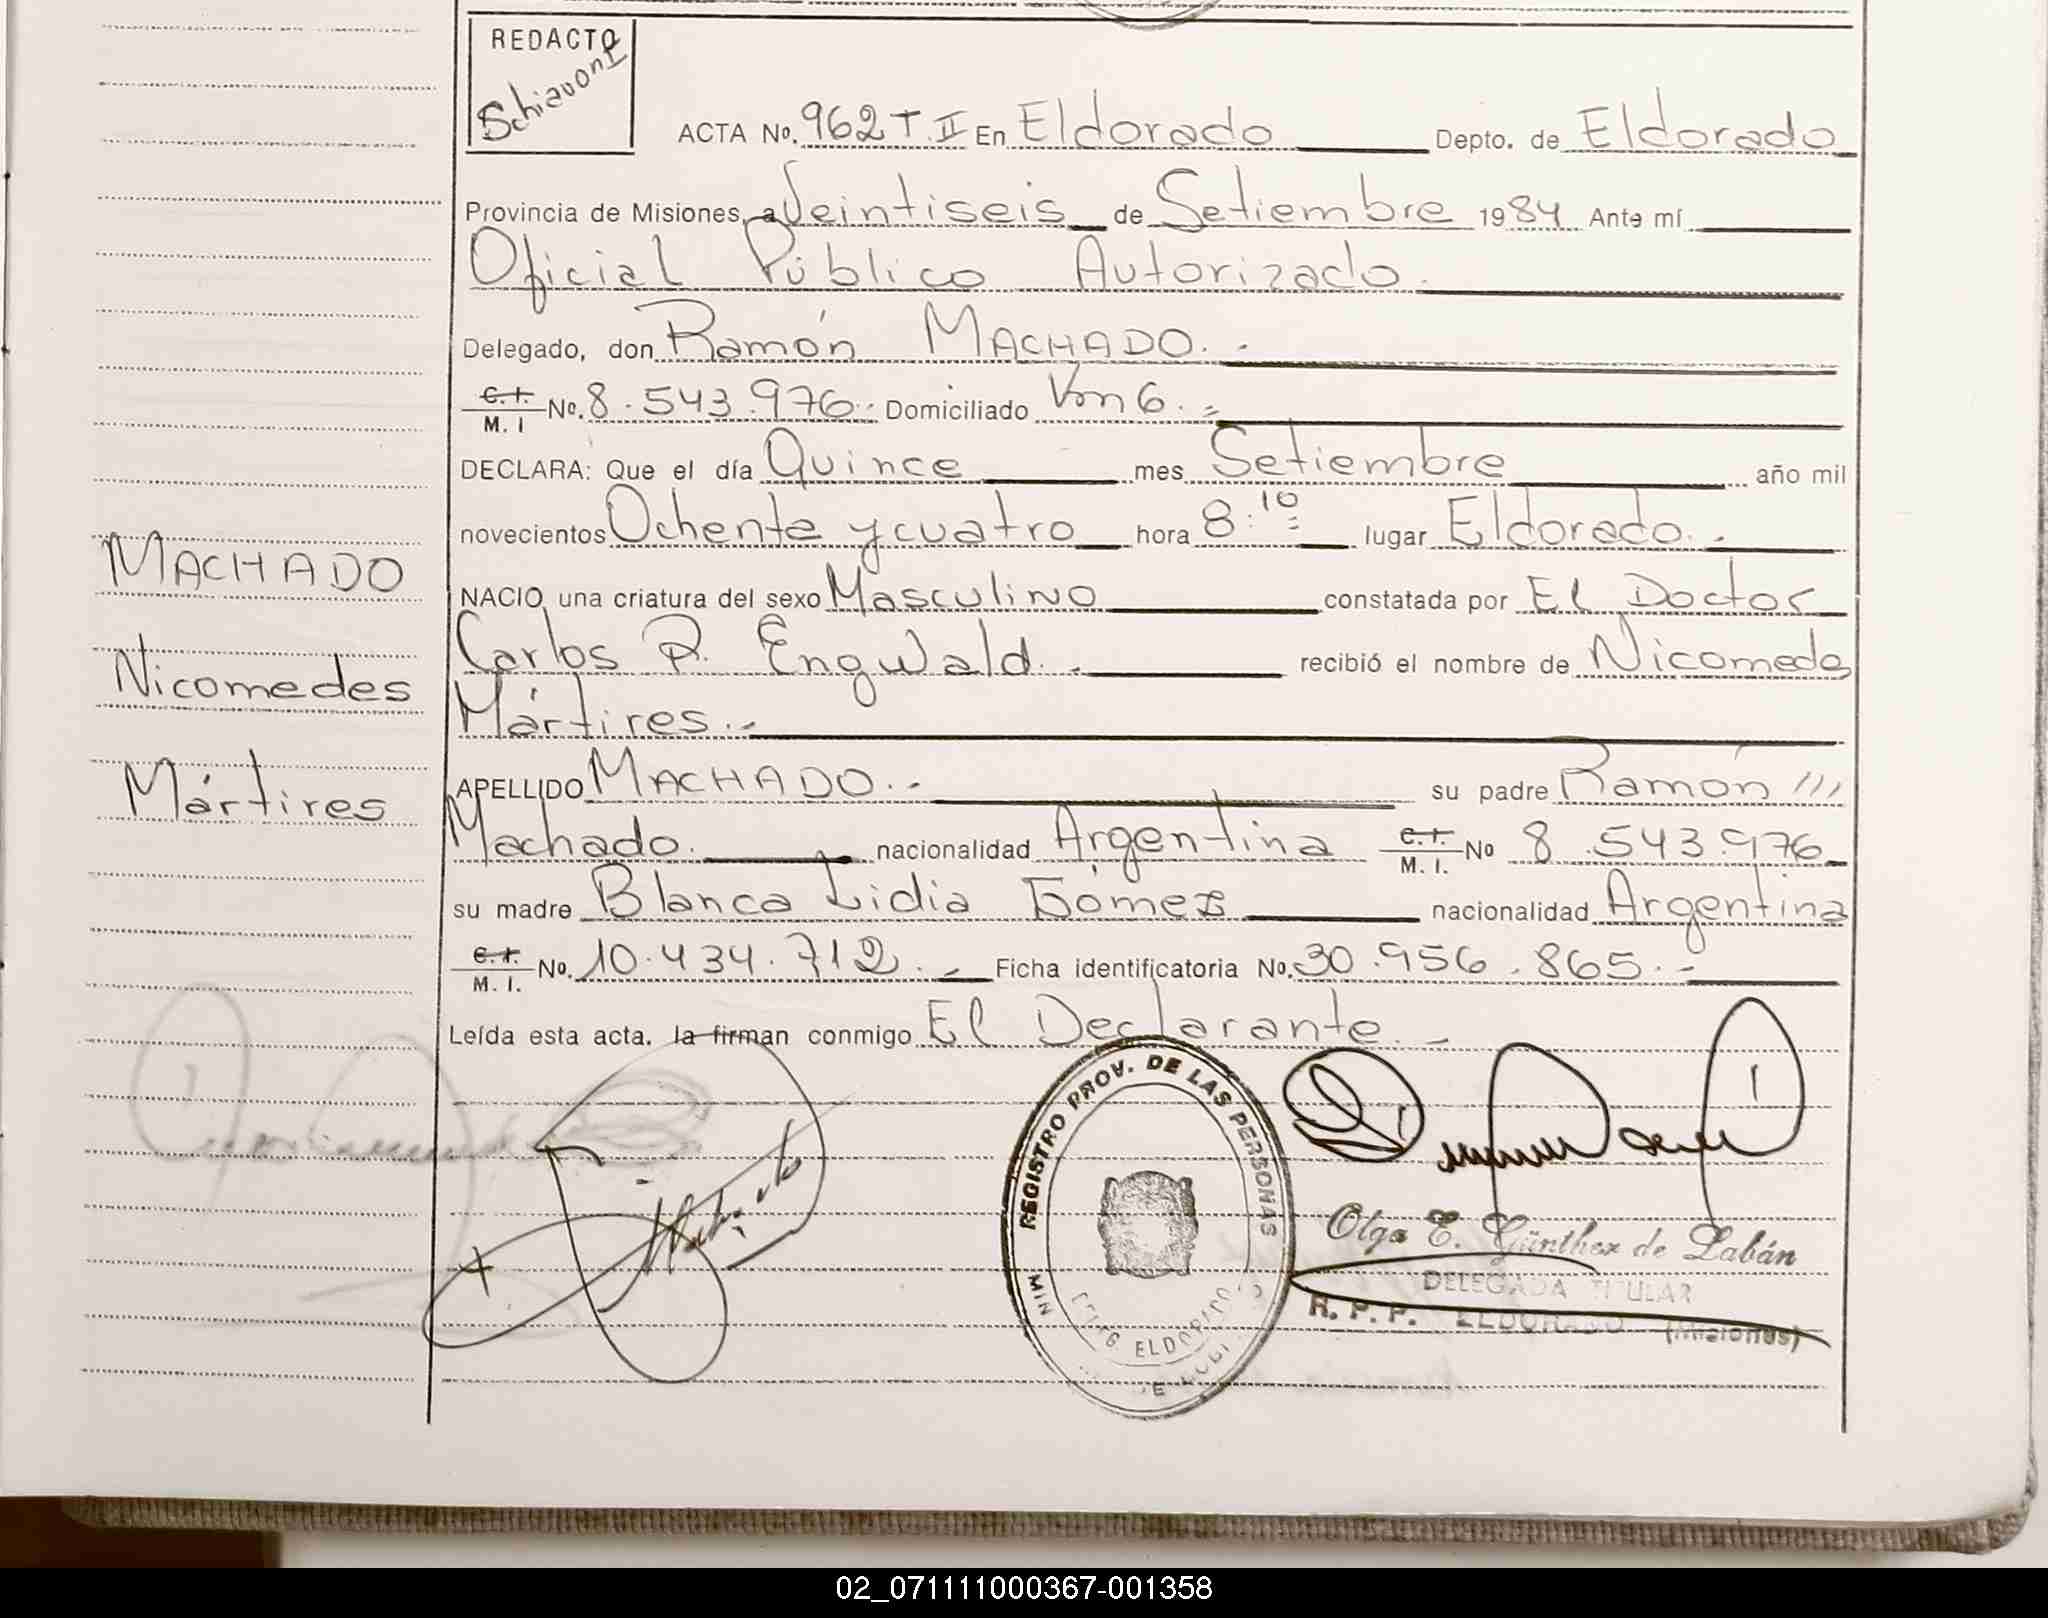 REDACTO
Schiavoni
ACTA No. 962 T. II En Eldorado Depto. de Eldorado
Provincia de Misiones, a Veintiseis de Setiembre 1984 Ante mí
Oficial Público Autorizado.
Delegado, don Ramón MACHADO. -
C.I. M. I No. 8.543.976.- Domiciliado Km 6. =
DECLARA: Que el día Quince mes Setiembre año mil
novecientos Ochenta y cuatro hora 8:10 = lugar Eldorado. -
MACHADO
NACIO, una criatura del sexo Masculino constatada por El Doctor
Nicomedes
Carlos R. Engwald. - recibió el nombre de Nicomedes
Mártires. -
Mártires
APELLIDO MACHADO. - su padre Ramón ///
Machado. nacionalidad Argentina C.I. M. I. No 8.543.976
su madre Blanca Lidia Gómez nacionalidad Argentina
C.I. M. I. No. 10.434.712. - Ficha identificatoria No. 30.956.865. -
Leída esta acta. la firman conmigo El Declarante. -
REGISTRO PROV. DE LAS PERSONAS
ELDORADO
Olga E. Günther de Labán
DELEGADA TITULAR
R. P. P. ELDORADO (Misiones)
02_071111000367-001358